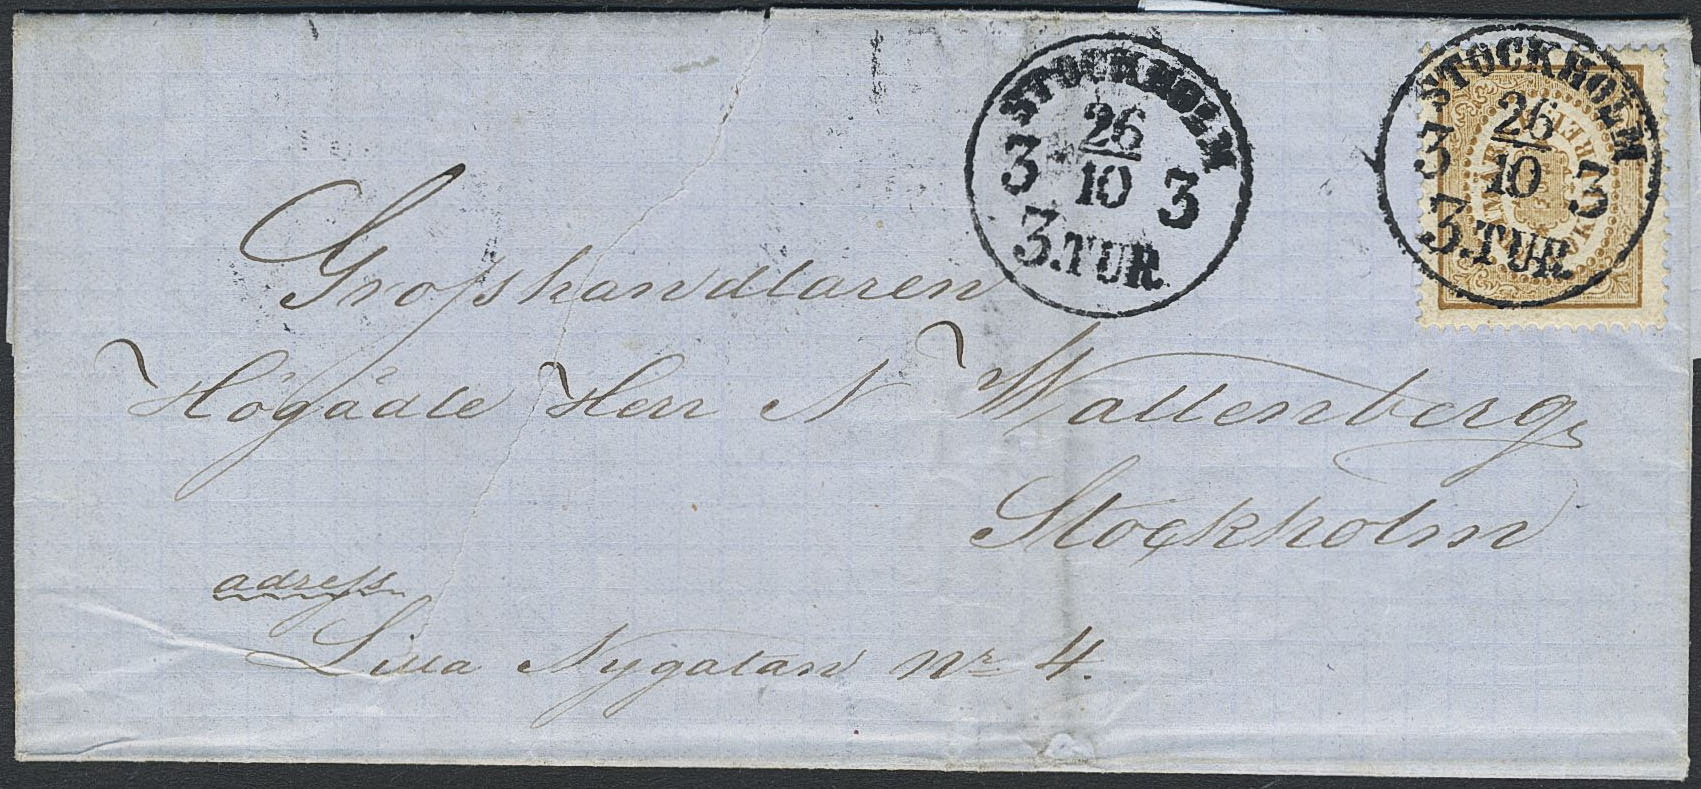 STOCKHOLM
26
10
3 3
3.TUR.
STOCKHOLM
26
10
3 3
3.TUR.
Grosshandlaren
Högädle Herr N Wallenberg,
Stockholm
adress
Lilla Nygatan Nr 4.